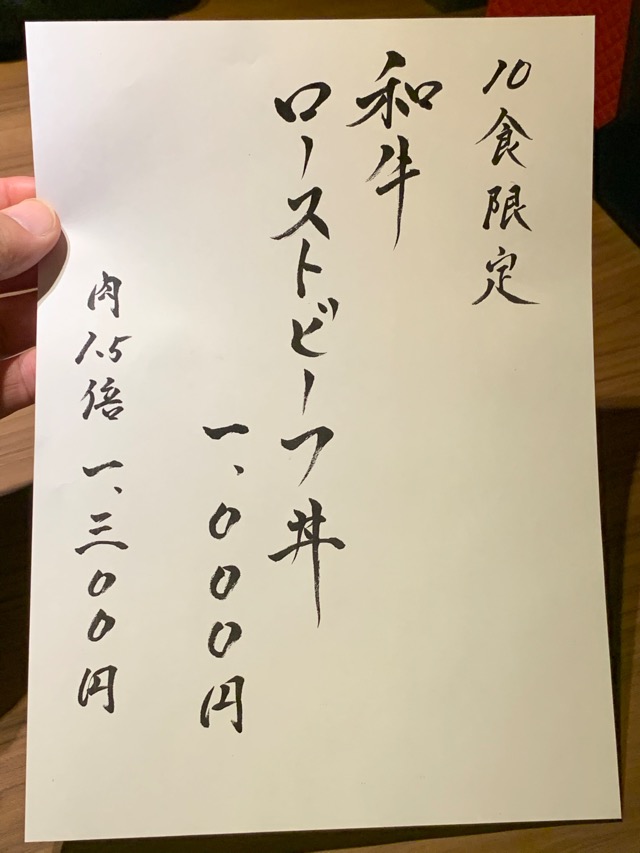 10食限定
和牛
ローストビーフ丼
一、000円
肉1.5倍 一、三00円